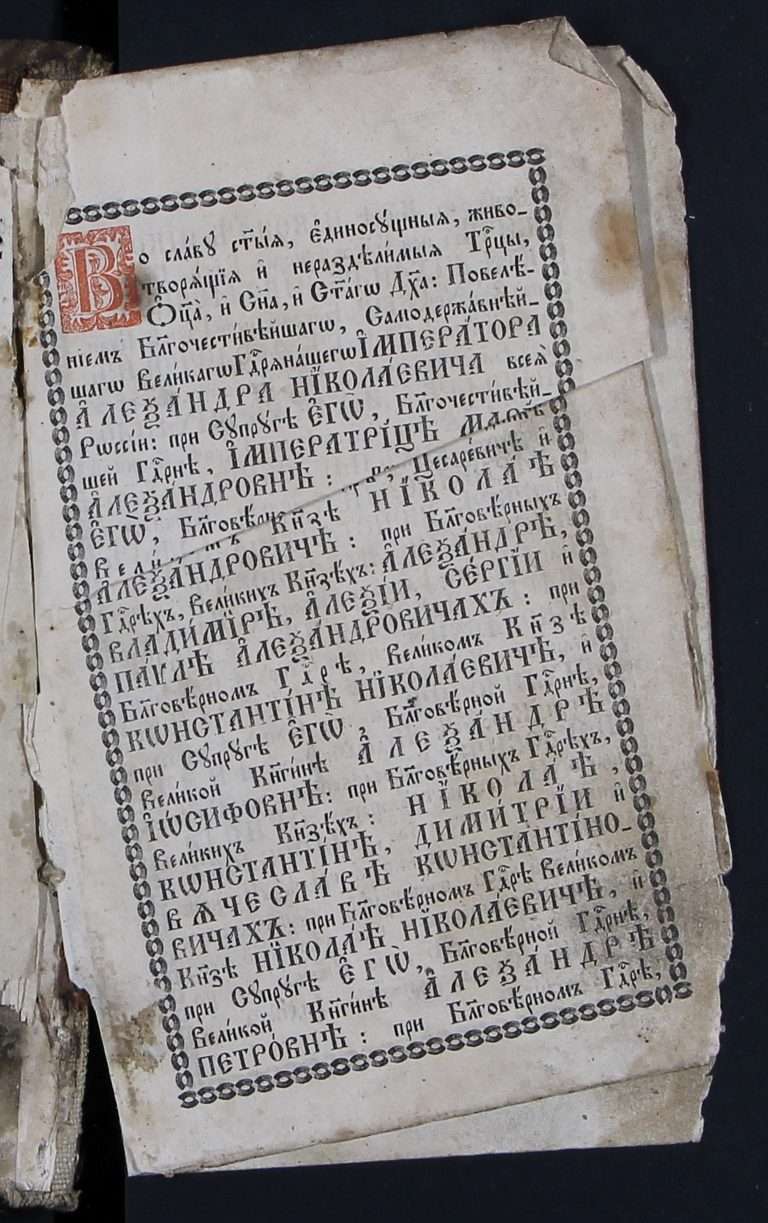 Во сла́вꙋ ст҃ы́ѧ, є҆диносꙋ́щныѧ, живо-
творѧ́щїѧ и҆ нераздѣли́мыѧ Трⷪ҇цы,
Ѻ҆ц҃а̀, и҆ Сн҃а, и҆ Ст҃а́гѡ Дх҃а: Повелѣ́-
нїемъ Блгⷭ҇очести́вѣйшагѡ, Самодержа́внѣй-
шагѡ Вели́кагѡ Гдⷭ҇рѧ на́шегѡ І҆МПЕРА́ТОРА
А҆ЛЕѮА́НДРА НЇКОЛА́ЕВИЧА всеѧ̀
Рѡссі́и: при Сꙋпрꙋ́гѣ Є҆ГѠ̀, Блгⷭ҇очести́вѣй-
шей Гдⷭ҇рнѣ, І҆МПЕРАТРІ́ЦѢ МАРІ́И
А҆ЛЕѮА́НДРОВНѢ: Цесаре́вичѣ и҆
Є҆ГѠ̀, Кнѧ҃зѣ НЇКОЛА́Ѣ
А҆ЛЕѮА́НДРОВИЧѢ: при Блгⷭ҇овѣ́рныхъ
Гдⷭ҇рѣхъ, Вели́кихъ Кнѧ҃зѣхъ: А҆ЛЕѮА́НДРѢ,
ВЛАДИ́МЇРѢ, А҆ЛЕѮІ́И, СЕ́РГЇИ и҆
ПА́ѴЛѢ А҆ЛЕѮА́НДРОВИЧАХЪ: при
Блгⷭ҇овѣ́рномъ Гдⷭ҇рѣ, Вели́комъ Кнѧ҃зѣ
КѠНСТАНТІ́НѢ НЇКОЛА́ЕВИЧѢ, и҆
при Сꙋпрꙋ́гѣ Є҆ГѠ̀, Блгⷭ҇овѣ́рной Гдⷭ҇рнѣ,
Вели́кой Кнѧги́нѣ А҆ЛЕѮА́НДРѢ
І҆Ѡ́СИФОВНѢ: при Блгⷭ҇овѣ́рныхъ Гдⷭ҇рѣхъ,
Вели́кихъ Кнѧ҃зѣхъ: НЇКОЛА́Ѣ,
КѠНСТАНТІ́НѢ, ДИМИ́ТРЇИ и҆
ВѦЧЕСЛА́ВѢ КѠНСТАНТІ́НО-
ВИЧАХЪ: при Блгⷭ҇овѣ́рномъ Гдⷭ҇рѣ Вели́комъ
Кнѧ҃зѣ НЇКОЛА́Ѣ НЇКОЛА́ЕВИЧѢ, и҆
при Сꙋпрꙋ́гѣ Є҆ГѠ̀, Блгⷭ҇овѣ́рной Гдⷭ҇рнѣ,
Вели́кой Кнѧги́нѣ А҆ЛЕѮА́НДРѢ
ПЕТРО́ВНѢ: при Блгⷭ҇овѣ́рномъ Гдⷭ҇рѣ,